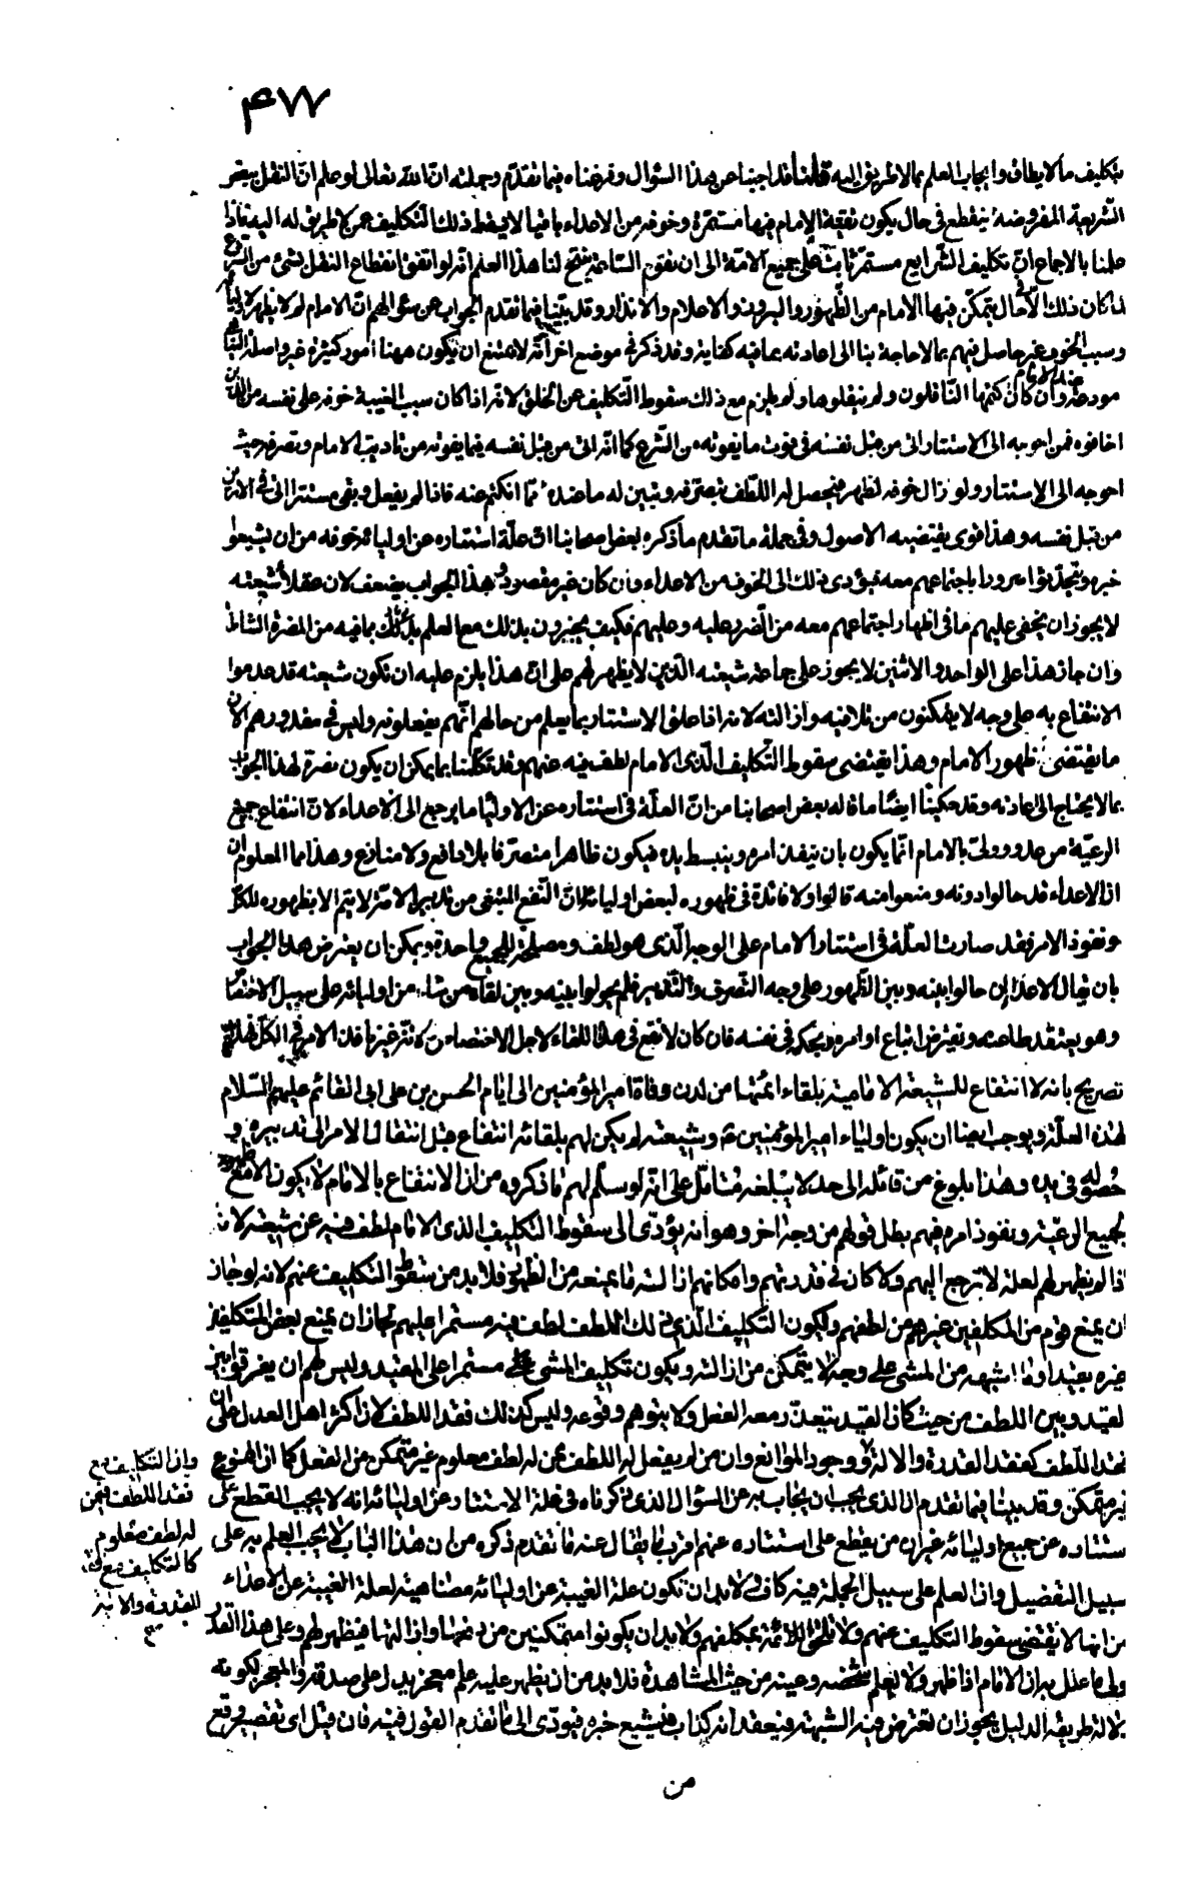 ٤٧٧
بتكليف ما لا يطاق وايجاب العلم بما لا طريق اليه قلنا قد اجبنا عن هذا السؤال وفرضناه فيما تقدم وجملته ان الله تعالى لو علم ان النقل ببعض
الشريعة المفروضة ينقطع في حال يكون تقية الامام فيها مستمرة وخوفه من الاعداء باقيا لاسقط ذلك التكليف عمن لا طريق له اليه فاذا
علمنا بالاجماع ان تكليف الشرايع مستمر ثابت على جميع الامة الى ان تقوم الساعة ينتج لنا هذا العلم انه لو اتفق انقطاع النقل بشئ من الشرع
لما كان ذلك الا في حال يتمكن فيها الامام من الظهور والبروز والاعلام والانذار وقد بيّنا فيما تقدم الجواب عن سؤالهم ان الامام لم لا يظهر لاوليائه
وسبب الخوف غير حاصل فيهم بما لا حاجة بنا الى اعادته بما فيه كفاية وقد ذكر في موضع اخر انه لا يمتنع ان يكون ههنا امور كثيرة غير واصلة الينا
مودعة عند الامام وان كان كتمها الناقلون ولم ينقلوها ولم يلزم مع ذلك سقوط التكليف عن الخلق لانه اذا كان سبب الغيبة خوفه على نفسه من الذين
اخافوه فمن احوجه الى الاستتار اتى من قبل نفسه في فوت ما يفوته من الشرع كما انه اتى من قبل نفسه فيما يفوته من تاديب الامام وتصرفه حيث
احوجه الى الاستتار ولو زال خوفه لظهر فيحصل له اللطف بتصرفه وتبين له ما عنده مما انكتم عنه فاذا لم يفعل وبقى مستترا اتى في الامرين
من قبل نفسه وهذا قوى يقتضيه الاصول وفي جملة ما تقدم ما ذكره بعض اصحابنا ان علة استتاره عن اوليائه خوفه من ان يشيعوا
خبره ويتحدثوا سرورا باجتماعهم معه فيؤدى ذلك الى الخوف من الاعداء وان كان غير مقصود وهذا الجواب يضعف لان عقلاء شيعته
لا يجوز ان يخفى عليهم ما في اظهار اجتماعهم معه من الضرر عليه وعليهم فكيف يخبرون بذلك مع العلم بما فيه من المضرة الشاملة
وان جاز هذا على الواحد والاثنين لا يجوز على جماعة شيعته الذين لا يظهر لهم على ان هذا يلزم عليه ان تكون شيعته قد عدموا
الانتفاع به على وجه لا يتمكنون من تلافيه وازالته لانه اذا علق الاستتار بما يعلم من حالهم انهم يفعلونه وليس في مقدورهم الان
ما يقتضى ظهور الامام وهذا يقتضى سقوط التكليف الذى الامام لطف فيه عنهم وقد تكلمنا بما يمكن ان يكون نصرة لهذا الجواب
بما لا يحتاج الى اعادته وقد حكينا ايضا ما قاله بعض اصحابنا من ان العلة في استتاره عن الاوليا ما يرجع الى الاعداء لان انتفاع جميع
الرعية من عدو وولى بالامام انما يكون بان ينفذ امره وينبسط يده فيكون ظاهرا متصرفا بلا دافع ولا منازع وهذا مما المعلوم ان
الاعداء قد حالوا دونه ومنعوا منه قالوا ولا فائدة في ظهوره لبعض اوليائه لان النفع المبتغى من تدبير الامة لا يتم الا بظهوره للكل
ونفوذ الامر فقد صارت العلة في استتار الامام على الوجه الذى هو لطف ومصلحة للجميع واحدة ويمكن ان يعترض هذا الجواب
بان يقال الاعداء ان حالوا بينه وبين الظهور على وجه التصرف والتدبير فلم يحولوا بينه وبين لقاء من شاء من اوليائه على سبيل الاختفاء
وهو يعتقد طاعته ويفترض اتباع اوامره ويحكمه في نفسه فان كان لا نفع في هذا اللقاء لاجل الاختصاص لانه غير نافذ الامر في الكل فهذا
تصريح بانه لا انتفاع للشيعة الامامية بلقاء ائمتها من لدن وفاة امير المؤمنين الى ايام الحسن بن على ابى القائم عليهم السلام
لهذه العلة ويوجب ايضا ان يكون اولياء امير المؤمنين ع وشيعته لم يكن لهم بلقائه انتفاع قبل انتقال الامر الى تدبيره و
حصوله في يده وهذا بلوغ من قائله الى حد لا يبلغه متامل على انه لو سلم لهم ما ذكروه من ان الانتفاع بالامام لا يكون الا مع ظهوره
لجميع الرعية ونفوذ امره فيهم بطل قولهم من وجه اخر وهو انه يؤدى الى سقوط التكليف الذى الامام لطف فيه عن شيعته لانه
اذا لم يظهر لهم لعلة لا ترجع اليهم ولا كان في قدرتهم وامكانهم ازالة ما يمنعه من الظهور فلا بد من سقوط التكليف عنهم لانه لو جاز
ان يمنع قوم من المكلفين غيرهم من لطفهم ويكون التكليف الذى ذلك اللطف لطف فيه مستمرا عليهم لجاز ان يمنع بعض المتكلفين
غيره بقيد او ما اشبهه من المشى على وجه لا يتمكن من ازالته ويكون تكليف المشى مستمرا على المقيد وليس لهم ان يفرقوا بين
لقيد وبين اللطف من حيث كان القيد يتعذر معه الفعل ولا يتوهم وقوعه وليس كذلك فقد اللطف لان اكثر اهل العدل على ان
فقد اللطف كفقد القدرة والالة ووجود الموانع وان من لم يفعل له اللطف ممن له لطف معلوم غير متمكن من الفعل كما ان الممنوع
غير متمكن وقد بينا فيما تقدم ان الذى يجب ان يجاب به عن السؤال الذى ذكرناه في علة الاستتار عن اوليائه انه لا يجب القطع على
ستتاره عن جميع اوليائه غير ان من يقطع على استتاره عنهم اقرب ما يقال عنه ما تقدم ذكره من ان هذا الباب لا يجب العلم به على
سبيل التفصيل وان العلم على سبيل الجملة فيه كاف ولا بد ان تكون علة الغيبة عن اوليائه مضاهية لعلة الغيبة عن الاعداء
من انها لا تقتضى سقوط التكليف عنهم ولا تلحق اللائمة بمكلفهم ولا بد ان يكونوا متمكنين من دفعها وازالتها فيظهر لهم وعلى هذا القدر
ولى ما علل به ان الامام اذا ظهر ولا يعلم شخصه وعينه من حيث المشاهدة فلا بد من ان يظهر عليه علم معجز يدل على صدقه والمعجز لكونه
دلالة طريقه الدليل يجوز ان تعترض فيه الشبهة فيعتقد انه كذاب فيشيع خبره فيودى الى ما تقدم القول فيه فان قيل اى تقصير وقع
وان التكليف مع
فقد اللطف فيمن
له لطف معلوم
كالتكليف مع فقد
القدرة والالة
من